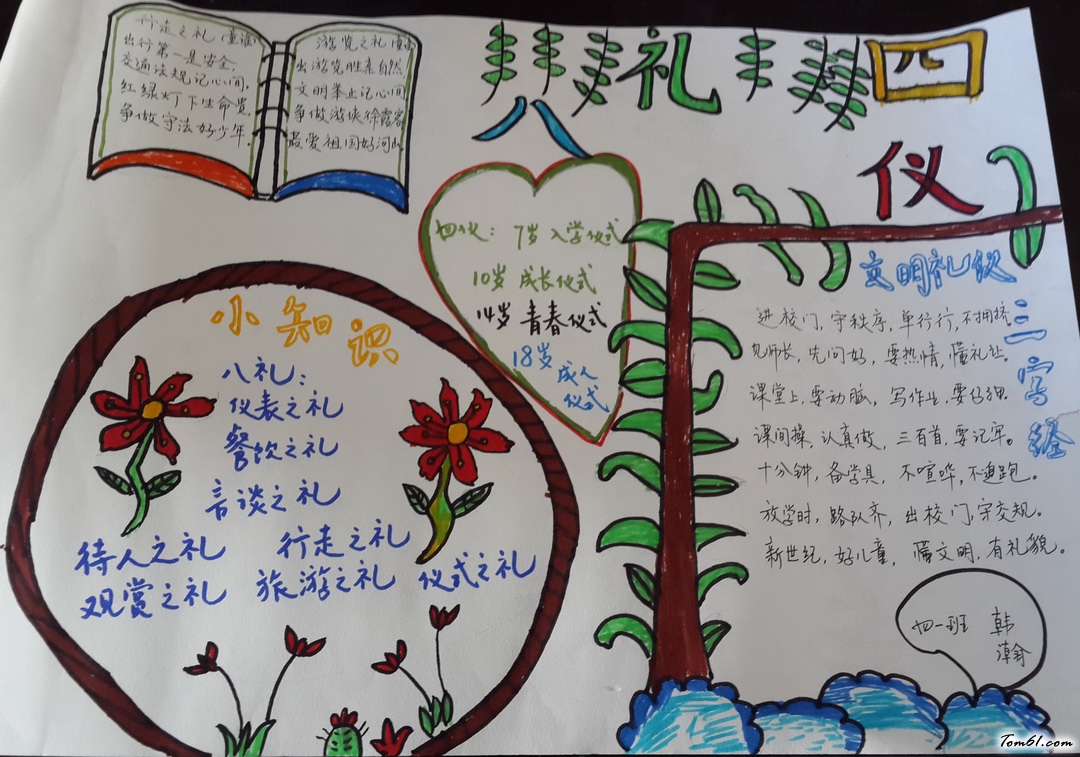 八礼四仪
行走之礼(童谣)
出行第一是安全,
交通法规记心间.
红绿灯下生命贵,
争做守法好少年.
游览之礼
出游览胜亲自然
文明举止记心间
争做游侠徐霞客
最爱祖国好河山
四仪: 7岁 入学仪式
10岁 成长仪式
14岁 青春仪式
18岁 成人
仪式
小知识
八礼:
仪表之礼
餐饮之礼
言谈之礼
待人之礼 行走之礼
观赏之礼 旅游之礼 仪式之礼
文明礼仪
三字经
进校门,守秩序,单行行,不拥挤
见师长,先问好,要热情,懂礼让.
课堂上,要动脑,写作业,要仔细.
课间操,认真做,三百首,要记牢。
十分钟,备学具,不喧哗,不追跑。
放学时,路队齐,出校门,守交规.
新世纪,好儿童,懂文明,有礼貌.
四一班 韩
瀚
Tom61.com